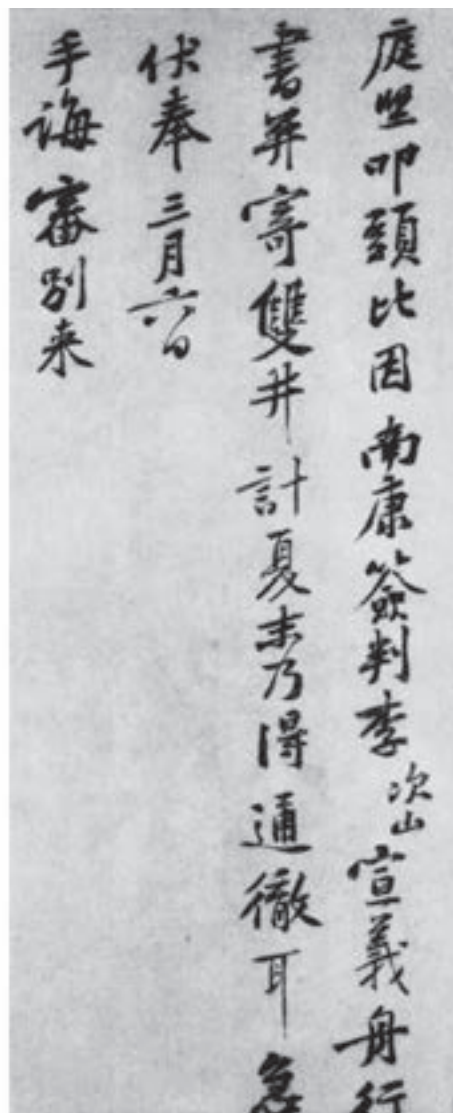 庭堅叩頭比因南康簽判李次山宣義舟行
書并寄雙井計夏末乃得通徹耳急
伏奉三月六日
手誨審別来